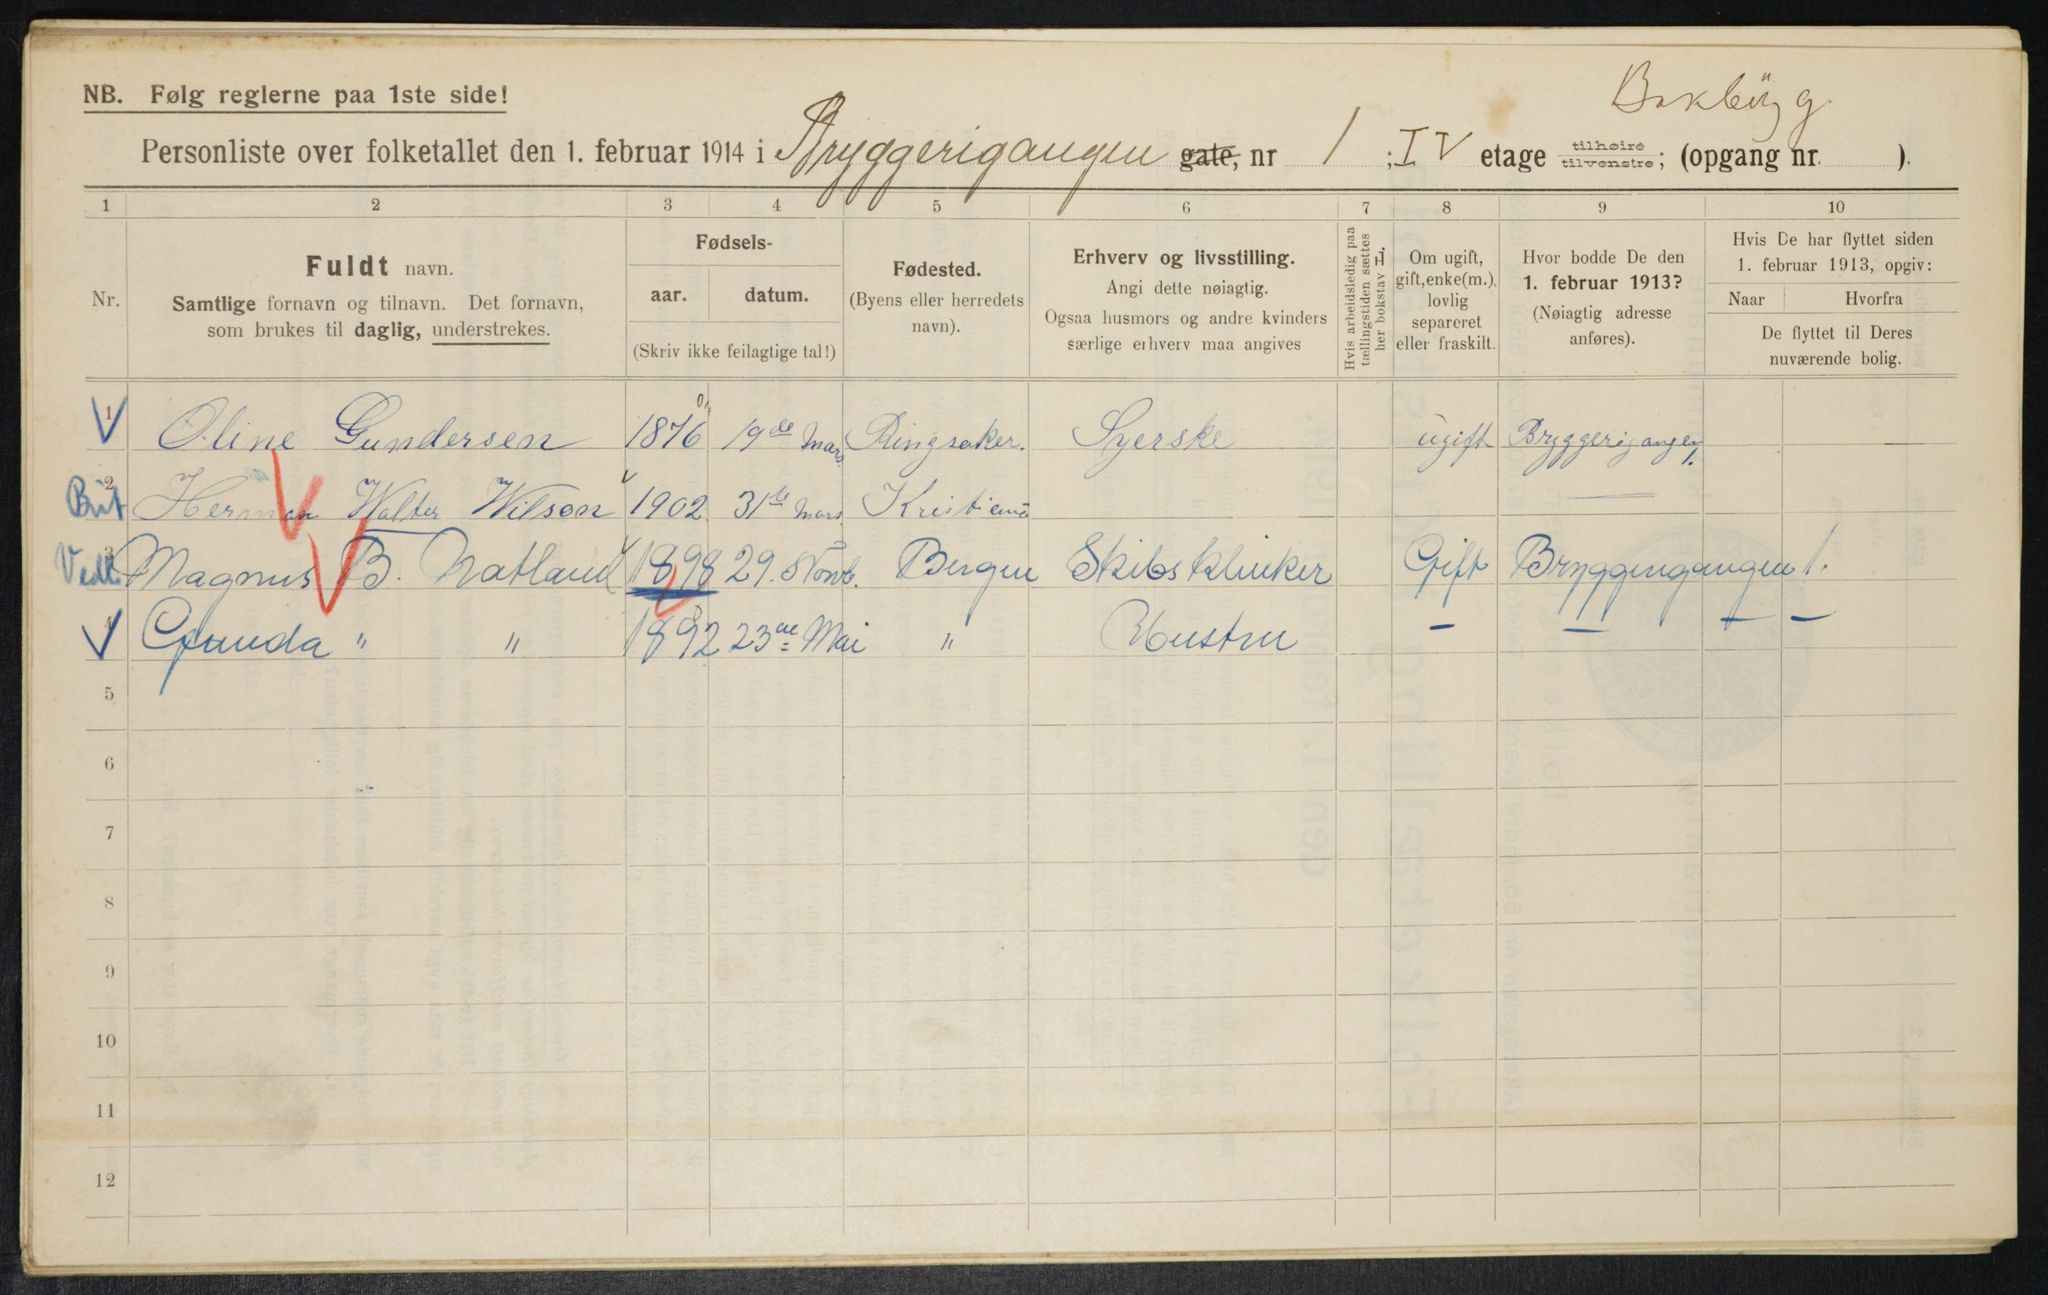 NB. Følg reglerne paa 1ste side!
Personliste over folketallet den 1. februar 1914 i Bryggerigangen gate, nr 1 ; IV etage tilhøire tilvenstre; (opgang nr. ).
1 2 3 4 5 6 7 8 9 10
Nr.
Fuldt navn.
Samtlige fornavn og tilnavn. Det fornavn,
som brukes til daglig, understrekes.
Fødsels-
aar. datum.
(Skriv ikke feilagtige tal!)
Fødested.
(Byens eller herredets
navn).
Erhverv og livsstilling.
Angi dette nøiagtig.
Ogsaa husmors og andre kvinders
særlige erhverv maa angives
Hvis arbeidsledig paa
tællingstiden sættes
her bokstav L.
Om ugift,
gift, enke(m.),
lovlig
separeret
eller fraskilt.
Hvor bodde De den
1. februar 1913?
(Nøiagtig adresse
anføres).
Hvis De har flyttet siden
1. februar 1913, opgiv:
Naar Hvorfra
De flyttet til Deres
nuværende bolig.
1 Oline Gundersen 1876 19de Mars Ringsaker. Syerske ugift Bryggerigangen 1.
2 Herman Walter Wilson 1902 31te Mars Kristiania
3 Magnus B. Natland 1898 29. Novb. Bergen Skibsklinker Gift Bryggerigangen 1.
4 Gunda " " 1892 23de Mai " Hustru – – – –
5
6
7
8
9
10
11
12